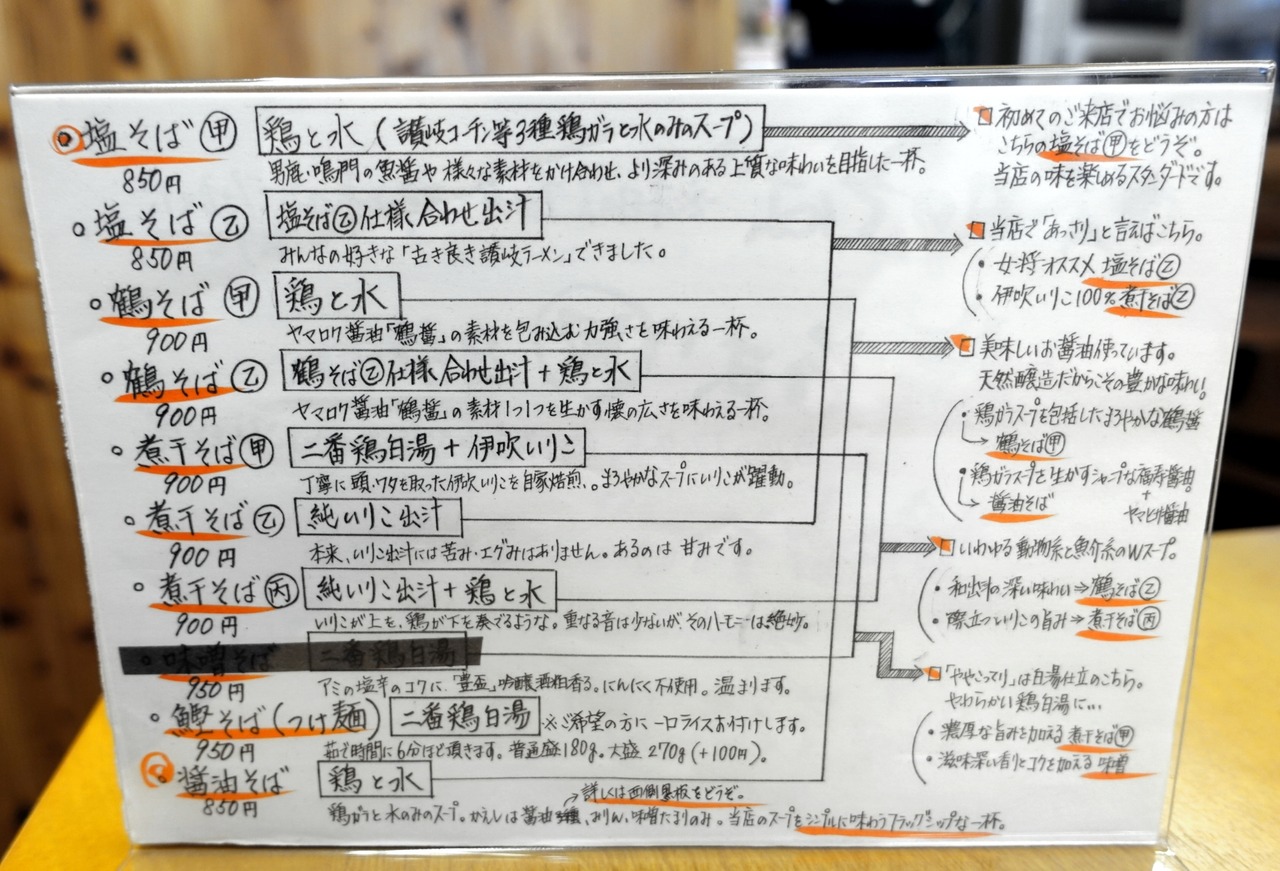 塩そば㊙甲
鶏と水(讃岐コーチン等3種鶏ガラと水のみのスープ)
850円
男鹿・鳴門の魚醤や様々な素材をかけ合わせ、より深みのある上質な味わいを目指した一杯。
塩そば乙
塩そば乙仕様合わせ出汁
850円
みんなの好きな「古き良き讃岐ラーメン」できました。
鶴そば甲
鶏と水
900円
ヤマロク醤油「鶴醤」の素材を包み込む力強さを味わえる一杯。
鶴そば乙
鶴そば乙仕様合わせ出汁+鶏と水
900円
ヤマロク醤油「鶴醤」の素材1つ1つを生かす懐の広さを味わえる一杯。
煮干そば甲
二番鶏白湯+伊吹いりこ
900円
丁寧に頭・ワタを取った伊吹いりこを自家焙煎。まろやかなスープにいりこが躍動。
煮干そば乙
純いりこ出汁
900円
本来、いりこ出汁には苦み・エグみはありません。あるのは甘みです。
煮干そば丙
純いりこ出汁+鶏と水
900円
いりこが上を、鶏が下を奏でるような。重なる音は少ないが、そのハーモニーは絶妙。
味噌そば
二番鶏白湯
950円
アミの塩辛のコクに、「豊盃」吟醸酒粕香る。にんにく不使用。温まります。
鰹そば(つけ麺)
二番鶏白湯
※ご希望の方に一口ライスお付けします。
950円
茹で時間に6分ほど頂きます。普通盛180g。大盛270g(+100円)。
醤油そば
鶏と水
850円
詳しくは西側黒板をどうぞ。
鶏ガラと水のみのスープ。かえしは醤油3種、みりん、味噌たまりのみ。当店のスープをシンプルに味わうフラッグシップな一杯。
初めてのご来店でお悩みの方は
こちらの塩そば甲をどうぞ。
当店の味を楽めるスタンダードです。
当店で「あっさり」と言えばこちら。
・女将オススメ塩そば乙
・伊吹いりこ100%煮干そば乙
美味しいお醤油使っています。
天然醸造だからこその豊かな味わい!
・鶏ガラスープを包括したまろやかな鶴醤
鶴そば甲
・鶏ガラスープを生かすシャープな福寿醤油
+
醤油そば
ヤマヒサ醤油
いわゆる動物系と魚介系のWスープ。
・和出汁の深い味わい⇒鶴そば乙
・際立ついりこの旨み→煮干そば丙
「ややこってり」は白湯仕立のこちら。
やわらかい鶏白湯に…
・濃厚な旨みを加える煮干そば甲
・滋味深い香りとコクを加える味噌